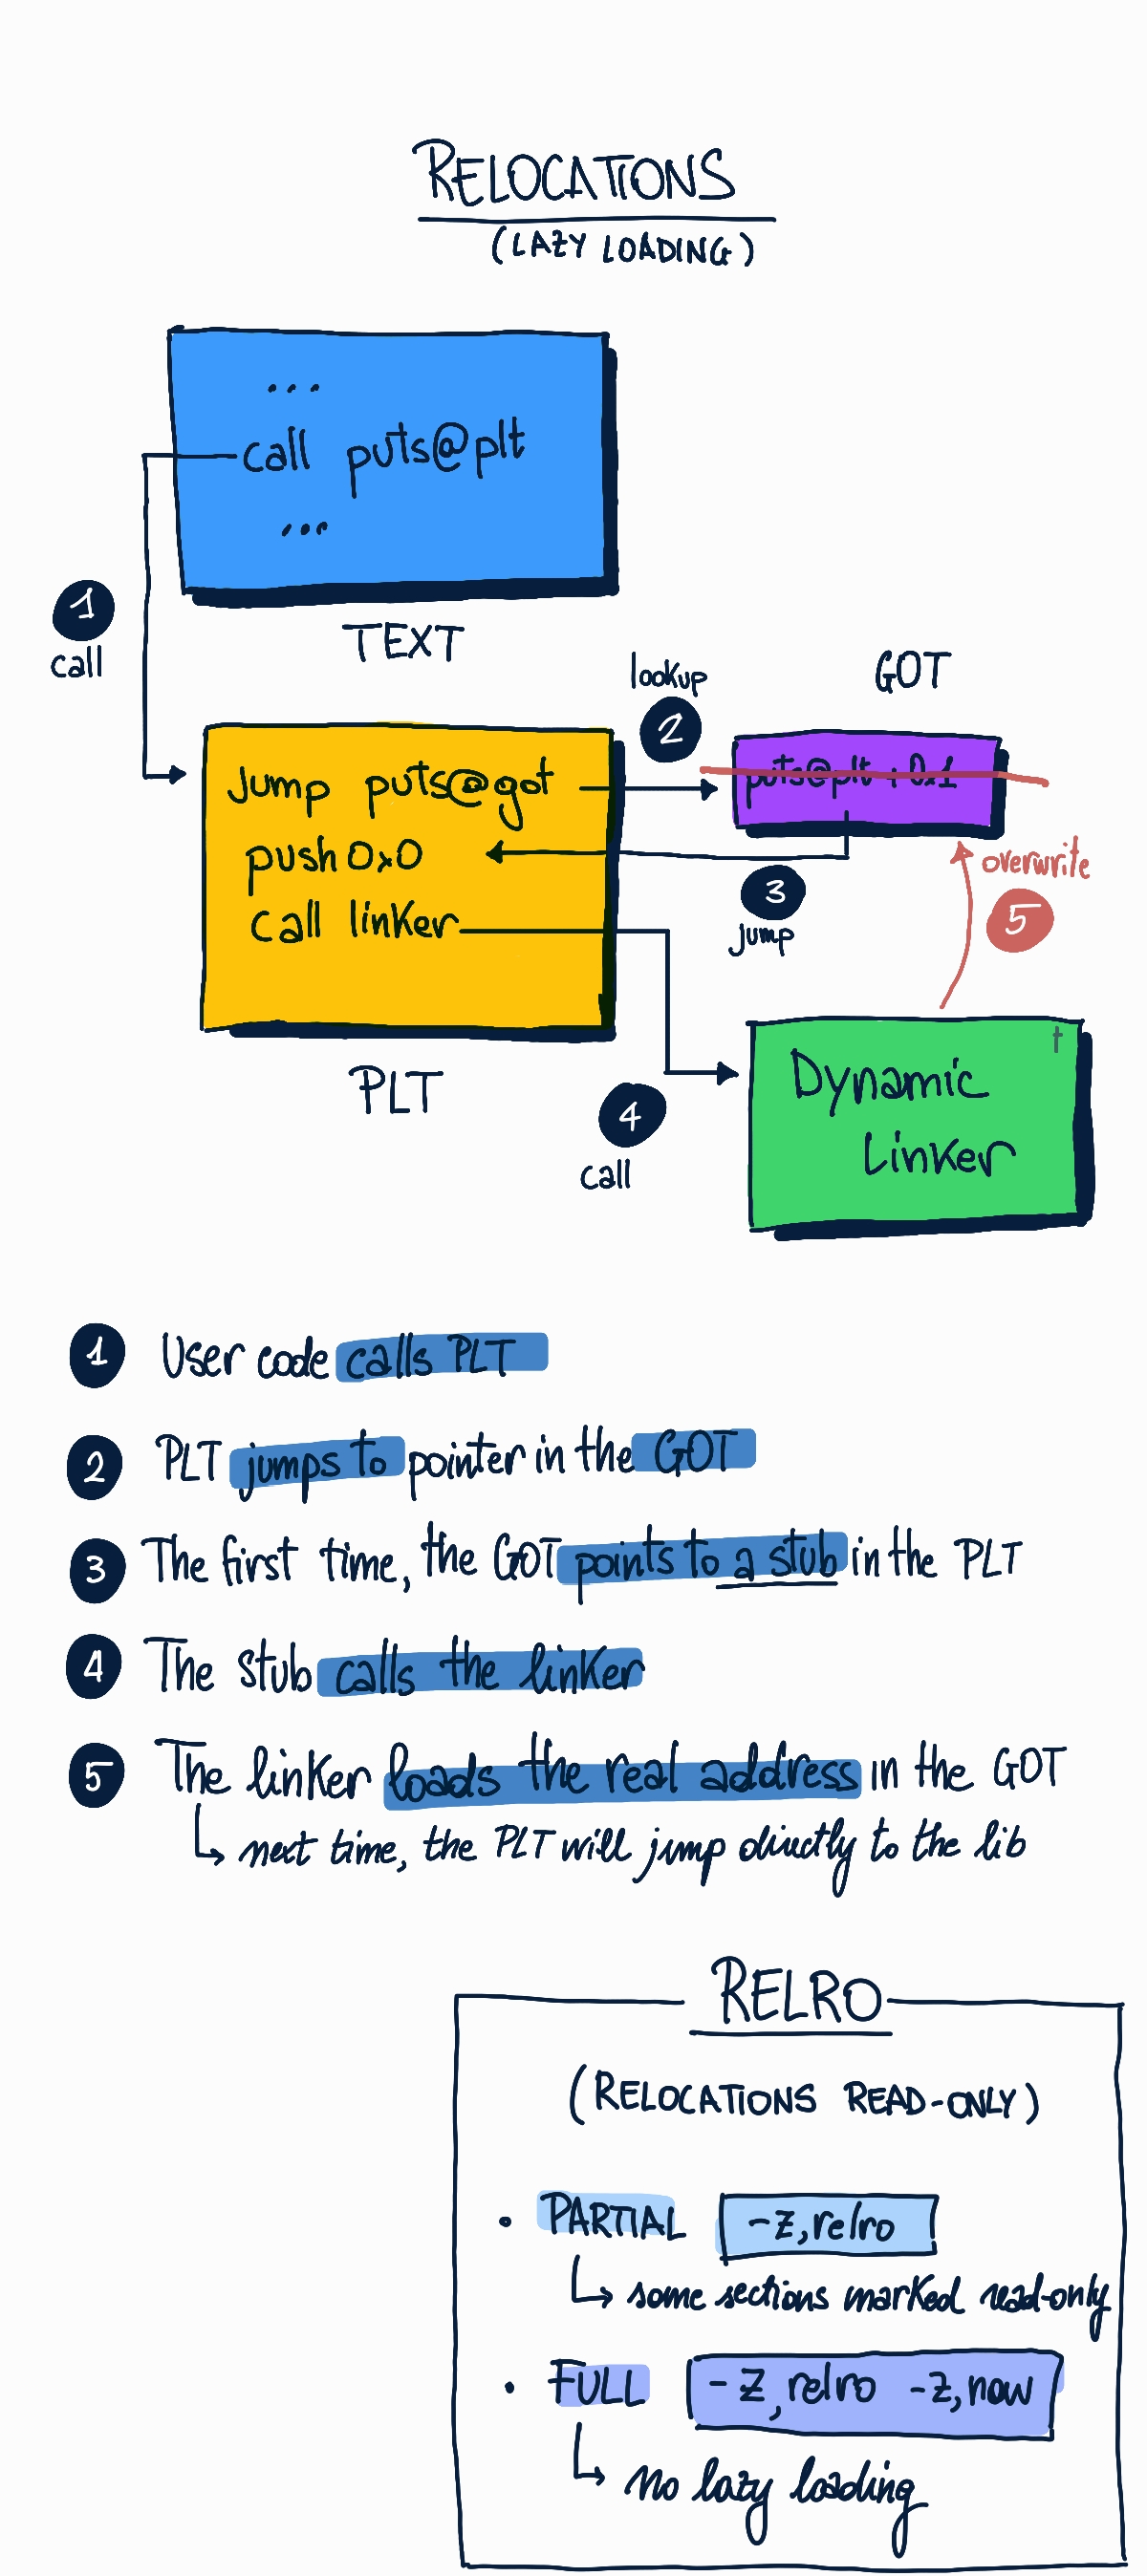 RELOCATIONS
(LAZY LOADING)
...
call puts@plt
...
1
call
TEXT
lookup
2
GOT
jump puts@got
puts@plt + 0x1
push 0x0
call linker
3
jump
overwrite
5
PLT
4
call
Dynamic
Linker
1 User code calls PLT
2 PLT jumps to pointer in the GOT
3 The first time, the GOT points to a stub in the PLT
4 The stub calls the linker
5 The linker loads the real address in the GOT
↳ next time, the PLT will jump directly to the lib
RELRO
(RELOCATIONS READ-ONLY)
• PARTIAL -z,relro
↳ some sections marked read-only
• FULL -z,relro -z,now
↳ no lazy loading